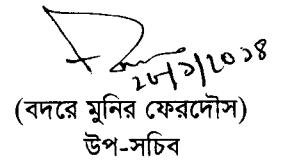 ২৮/১/২০১৪
(বদরে মুনির ফেরদৌস)
উপ-সচিব